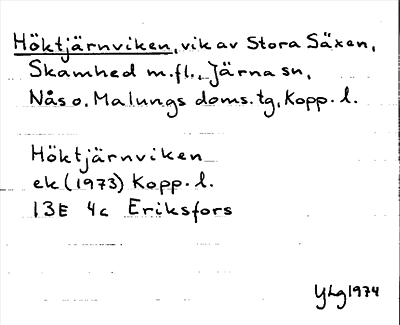 Höktjärnviken, vik av Stora Säxen,
Skamhed m.fl., Järna sn,
Nås o. Malungs doms.tg, Kopp. l.
Höktjärnviken
ek (1973) Kopp. l.
13E 4c Eriksfors
YLg 1974